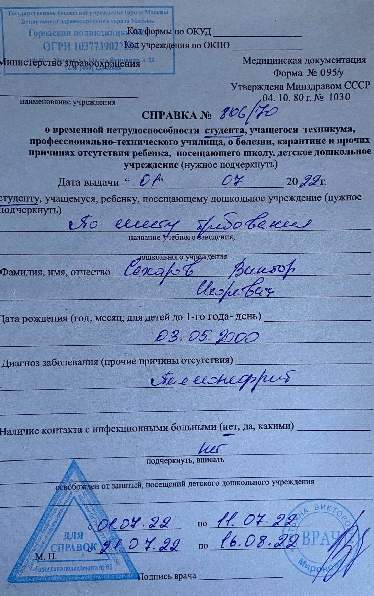 Государственное бюджетное учреждение города Москвы
Департамента здравоохранения города Москвы
Городская поликлиника
ОГРН 103773902
Код формы по ОКУД
Код учреждения по ОКПО
Министерство здравоохранения
Медицинская документация
Форма № 095/у
Утверждена Минздравом СССР
04. 10. 80 г. № 1030
наименование учреждения
СПРАВКА № 806/70
о временной нетрудоспособности студента, учащегося техникума,
профессионально-технического училища, о болезни, карантине и прочих
причинах отсутствия ребенка, посещающего школу, детское дошкольное
учреждение (нужное подчеркнуть)
Дата выдачи "01 07 2022г.
студенту, учащемуся, ребенку, посещающему дошкольное учреждение (нужное
подчеркнуть)
По месту требования
название учебного заведения,
дошкольного учреждения
Фамилия, имя, отчество Сахаров Виктор
Игоревич
Дата рождения (год, месяц, для детей до 1-го года- день)
03.05.2000
Диагноз заболевания (прочие причины отсутствия)
Пиелонефрит
Наличие контакта с инфекционными больными (нет, да, какими)
нет
подчеркнуть, вписать
освобожден от занятий, посещений детского дошкольного учреждения
с 01.07.22 по 11.07.22
с 21.07.22 по 16.08.22
ДЛЯ
СПРАВОК
ВРАЧ
М. П.
Подпись врача